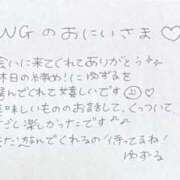 NGのおにいさま♡
会いに来てくれてありがとう
休日の締め!にゆずるを
選んでくれて嬉しいです
美味しいもののお話して、くっついて
すごく楽しかったです
また遊んでくれるの待ってるね!
ゆずる